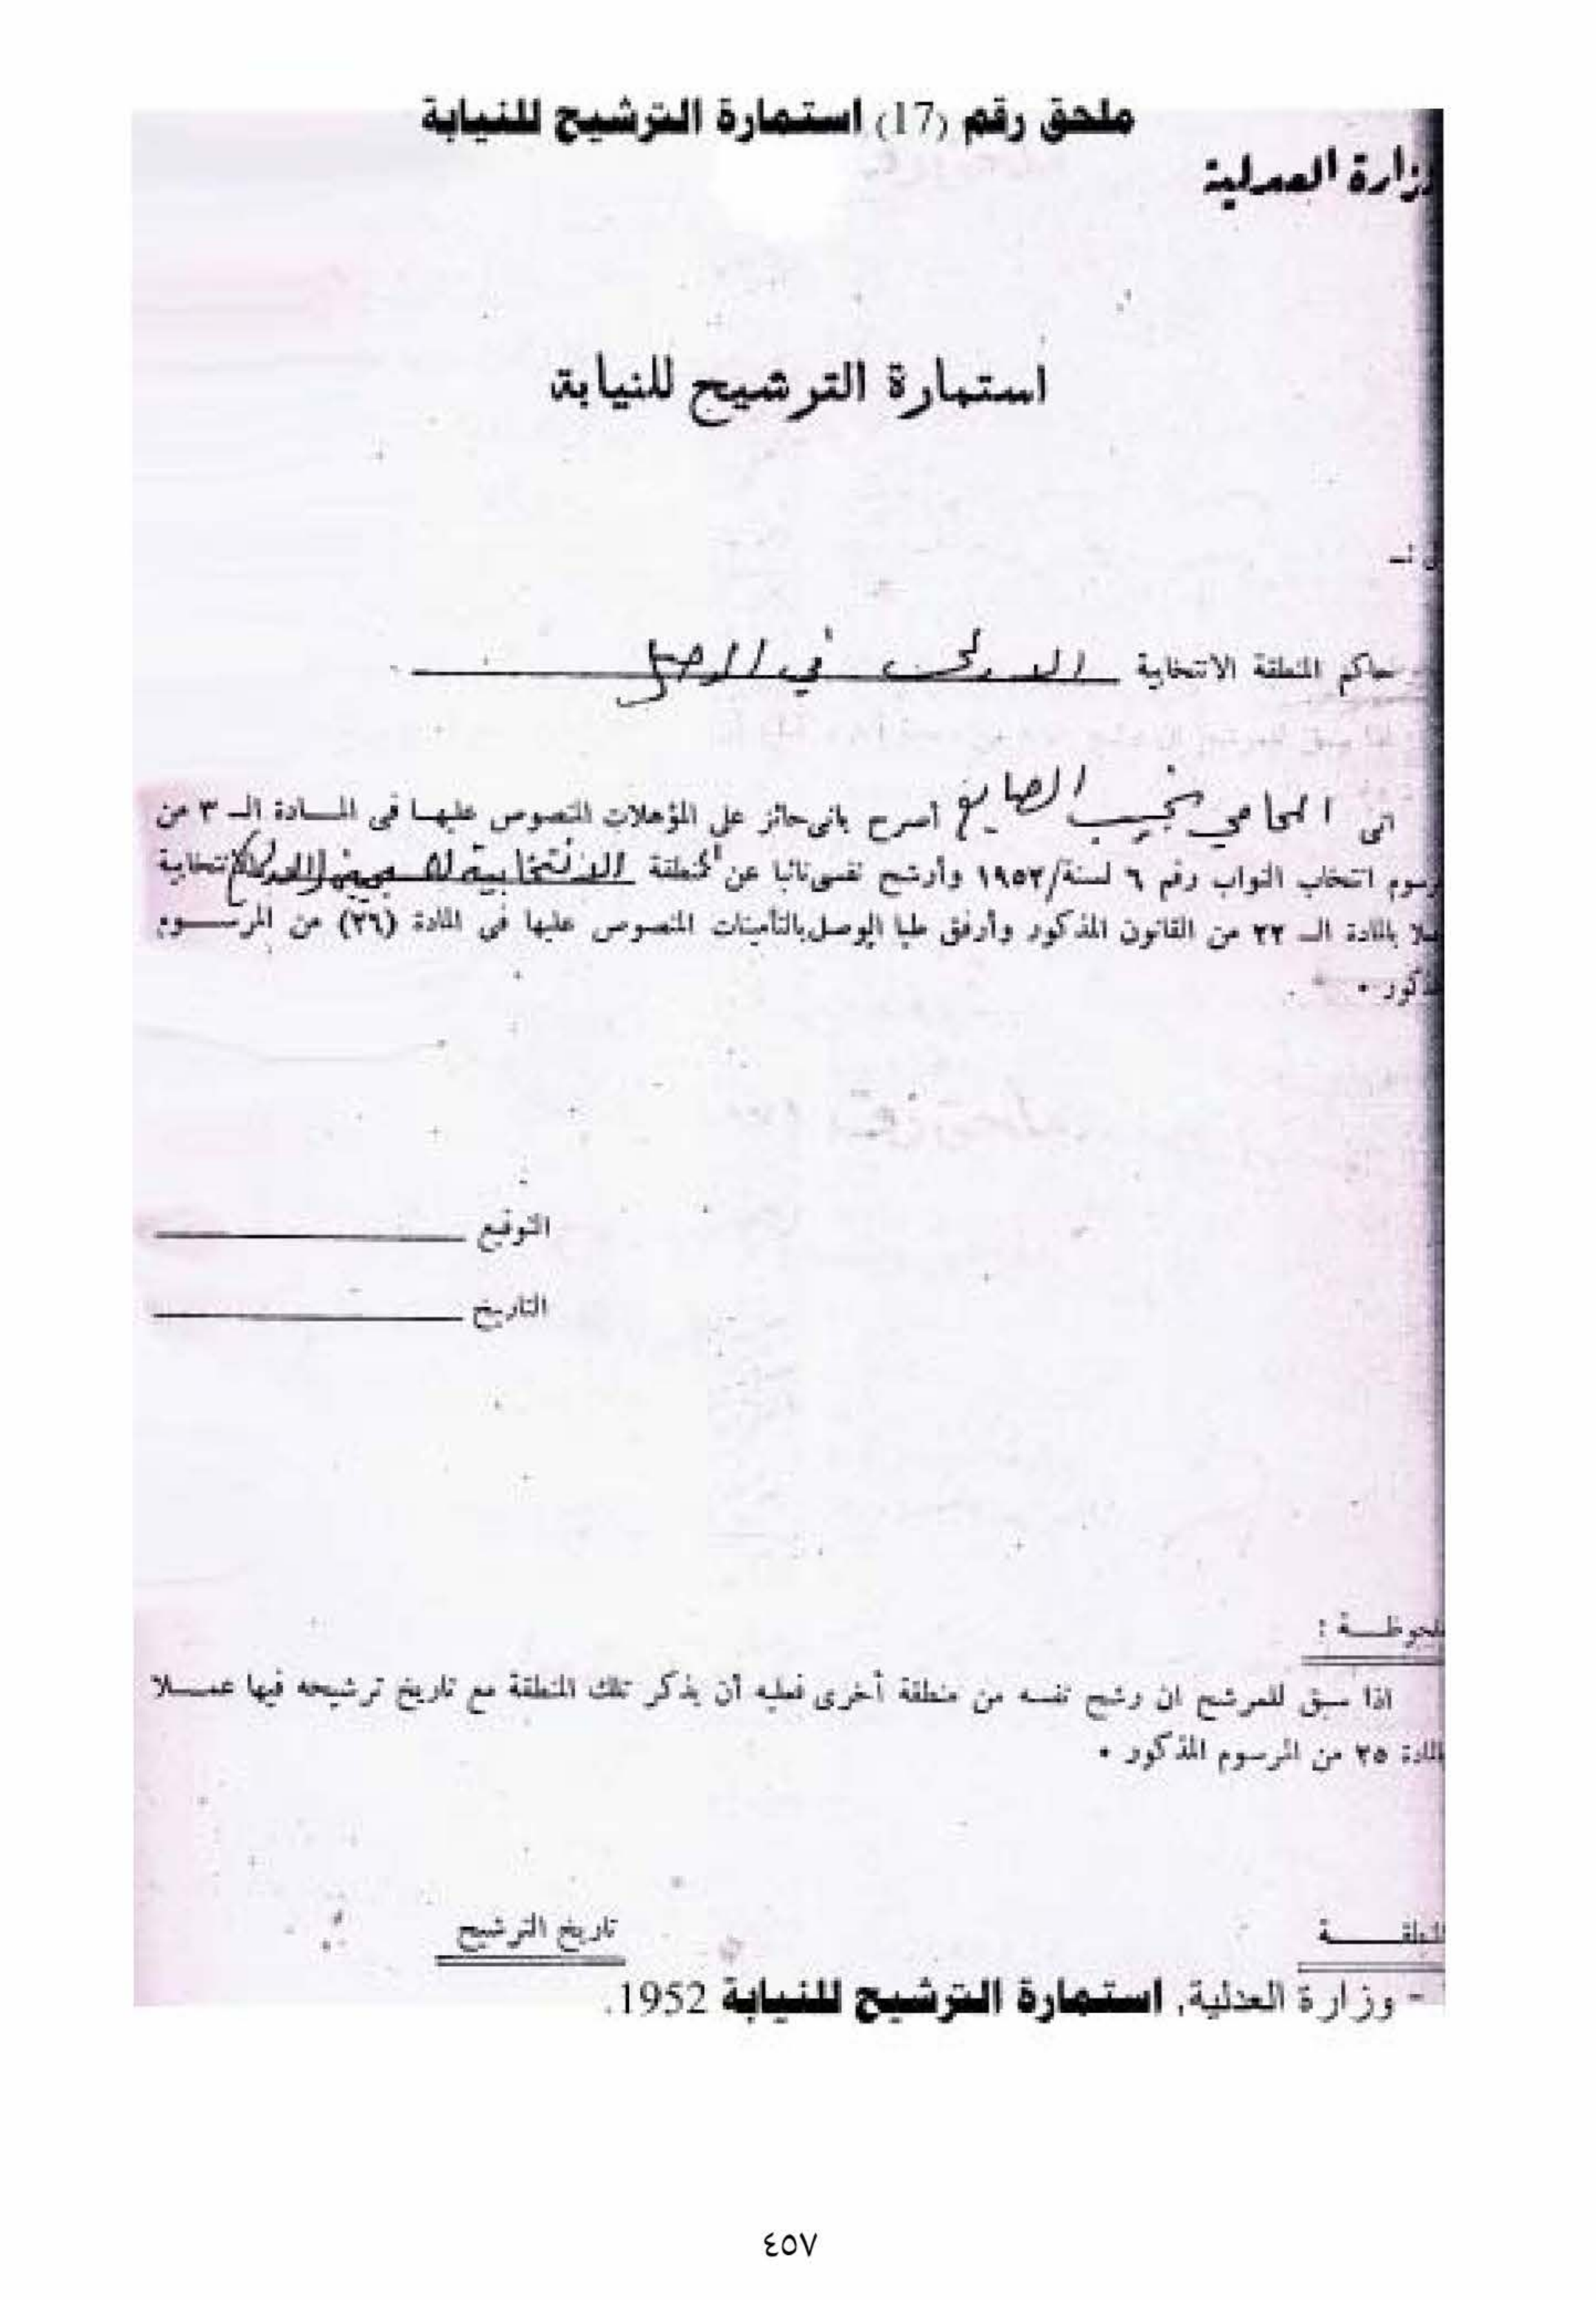 ملحق رقم (17) استمارة الترشيح للنيابة
وزارة العدلية
استمارة الترشيح للنيابة
حاكم المنطقة الانتخابية الاولى في الموصل
انى المحامي نجيب الصايغ أصرح بانى حائز على المؤهلات المنصوص عليهـا فى المـادة الـ ٣ من
رسوم انتخاب النواب رقم ٦ لسنة/١٩٥٢ وأرشح نفسى نائبا عن المنطقة الانتخابية انتخابية
بالمادة الـ ٢٢ من القانون المذكور وأرفق طيا الوصل بالتأمينات المنصوص عليها فى المادة (٢٦) من المرسـوم
ذكور ٠
التوقيع
التاريخ
لحوظـة :
اذا سبق للمرشح ان رشح نفسه من منطقة أخرى فعليه أن يذكر تلك المنطقة مع تاريخ ترشيحه فيها عمـلا
المادة ٢٥ من المرسوم المذكور ٠
المنطقـة تاريخ الترشيح
- وزارة العدلية, استمارة الترشيح للنيابة 1952.
٤٥٧